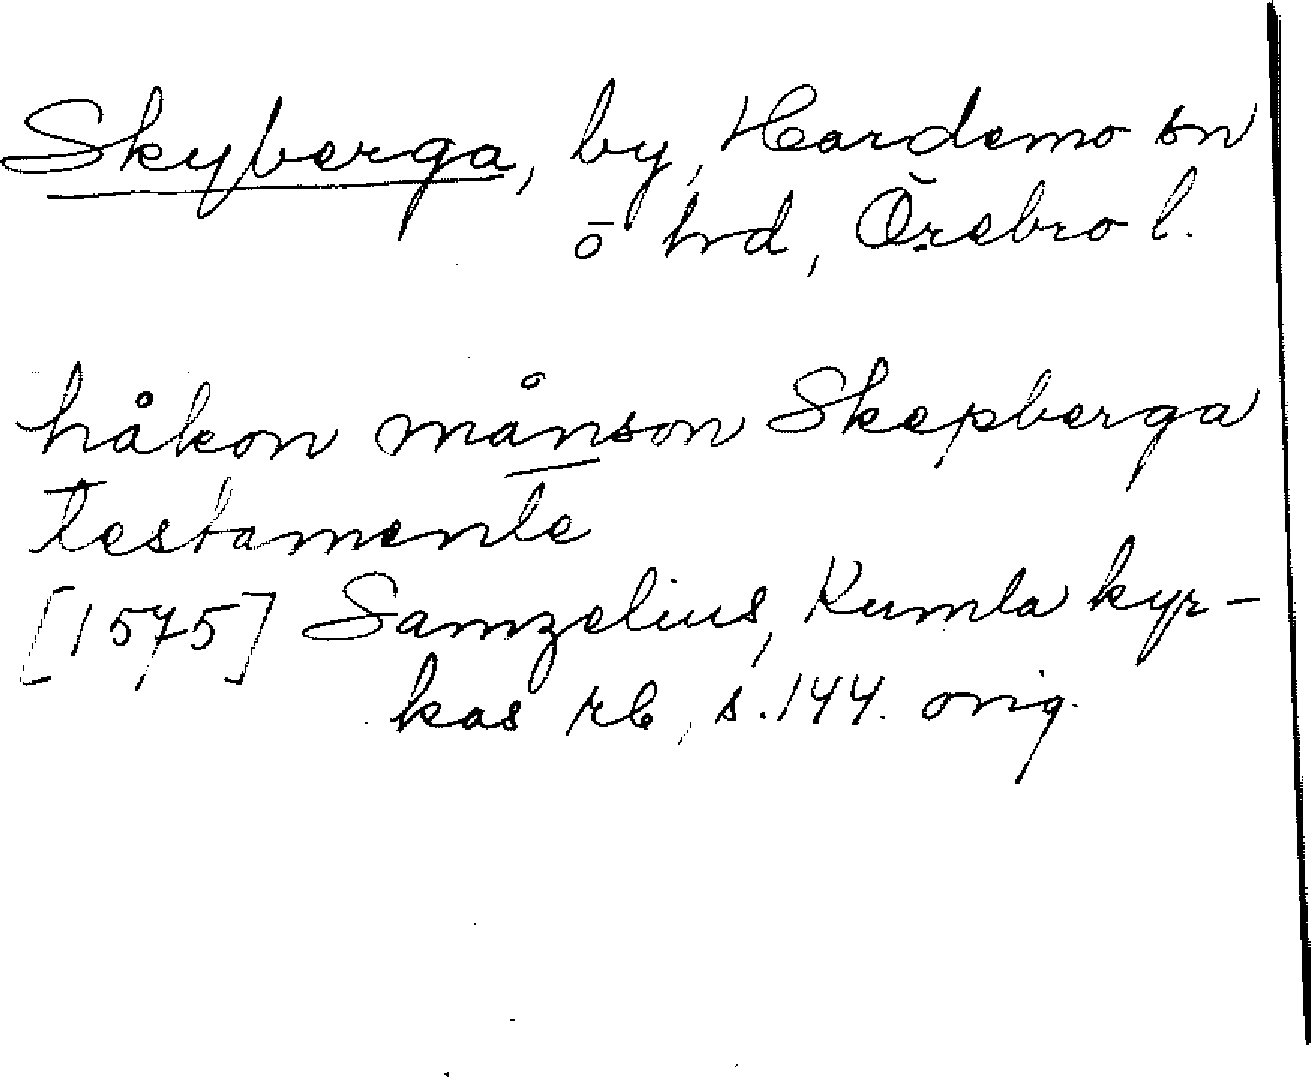 Skyberga, by, Hardemo sn
ō hrd, Örebro l.
håkon månson Skepberga
testamente
[1575] Samzelius, Kumla kyr-
kas rb, s. 144. orig.